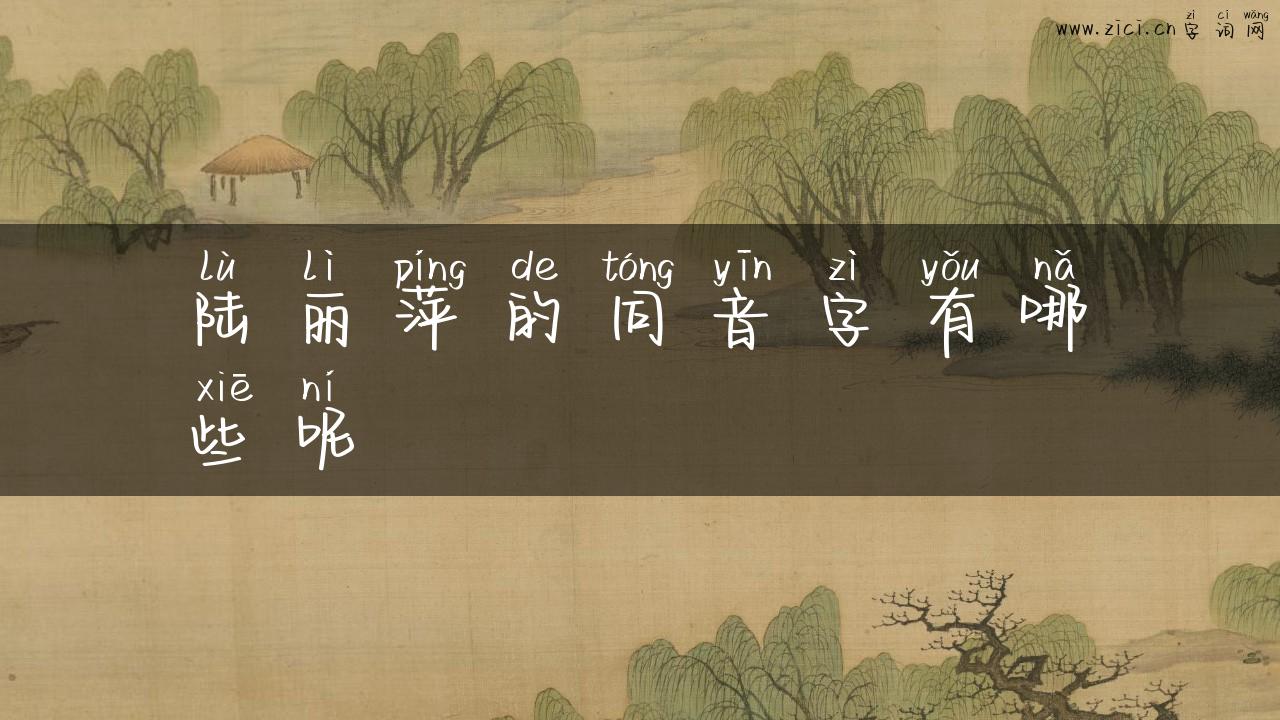 zì cí wǎng
www.zici.cn 字 词 网
lù lì píng de tóng yīn zì yǒu nǎ
陆 丽 萍 的 同 音 字 有 哪
xiē ní
些 呢